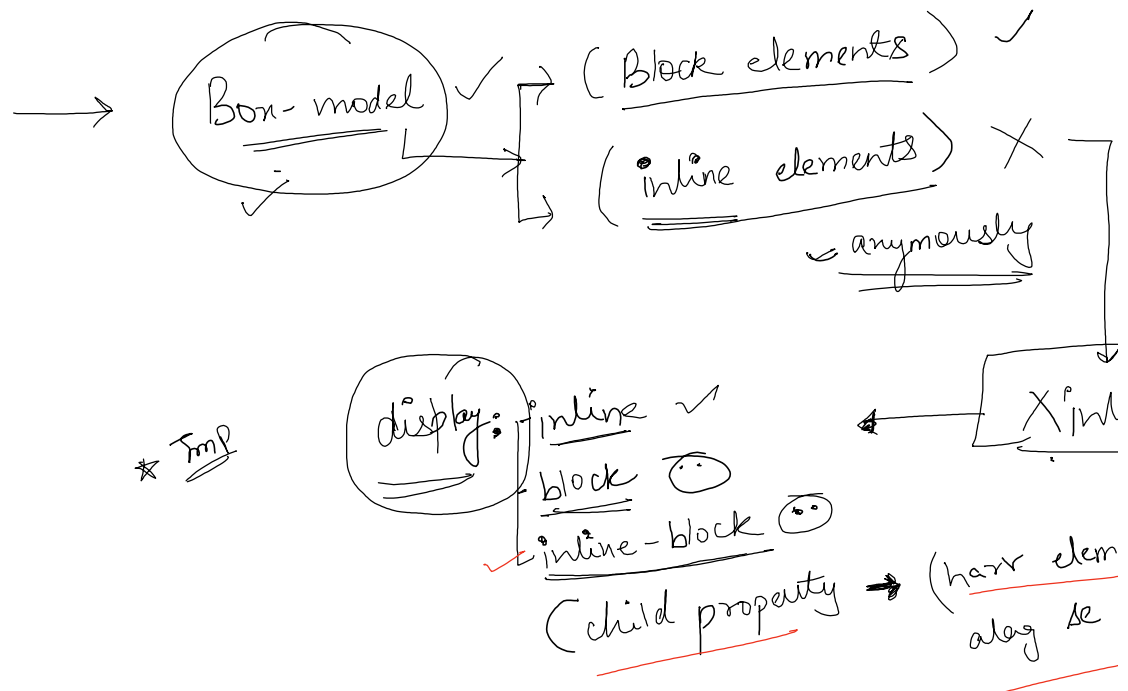 Box-model
(Block elements)
(inline elements) X
anymously
X inl
* Imp
display: inline
block
inline-block
(child property → (harr elem
alag se